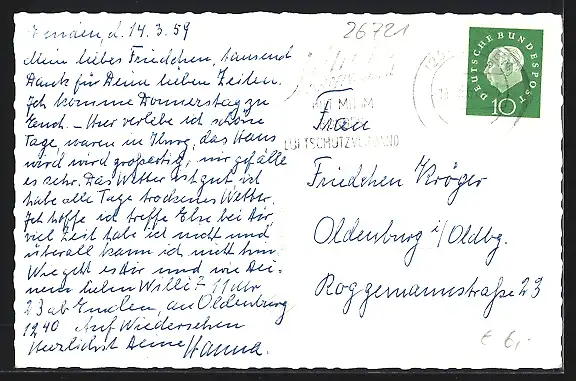 Emden, d. 14.3.59
Mein liebes Friedchen, tausend
Dank für Deine lieben Zeilen.
Ich komme Donnerstag zu
Euch. – Hier verlebe ich schöne
Tage, waren in Ihrog, das Haus
wird wird großartig, mir gefälle
es sehr. Das Wetter ist gut ich
habe alle Tage trockenes Wetter.
Ich hoffe ich treffe Else bei Dir
viel Zeit habe ich nicht und
überall kann ich nicht hin
Wie geht es Dir und wie Dei-
nem lieben Willi? 11 Uhr
23 ab Emden, an Oldenburg
1240 Auf Wiedersehen
Herzlichst Deine Hanna.
26721
MIT MIR IM
LUFTSCHUTZVERBAND
DEUTSCHE BUNDESPOST
10
Frau
Friedchen Kröger
Oldenburg i/Oldbg.
Roggemannstraße 23
€ 6,-